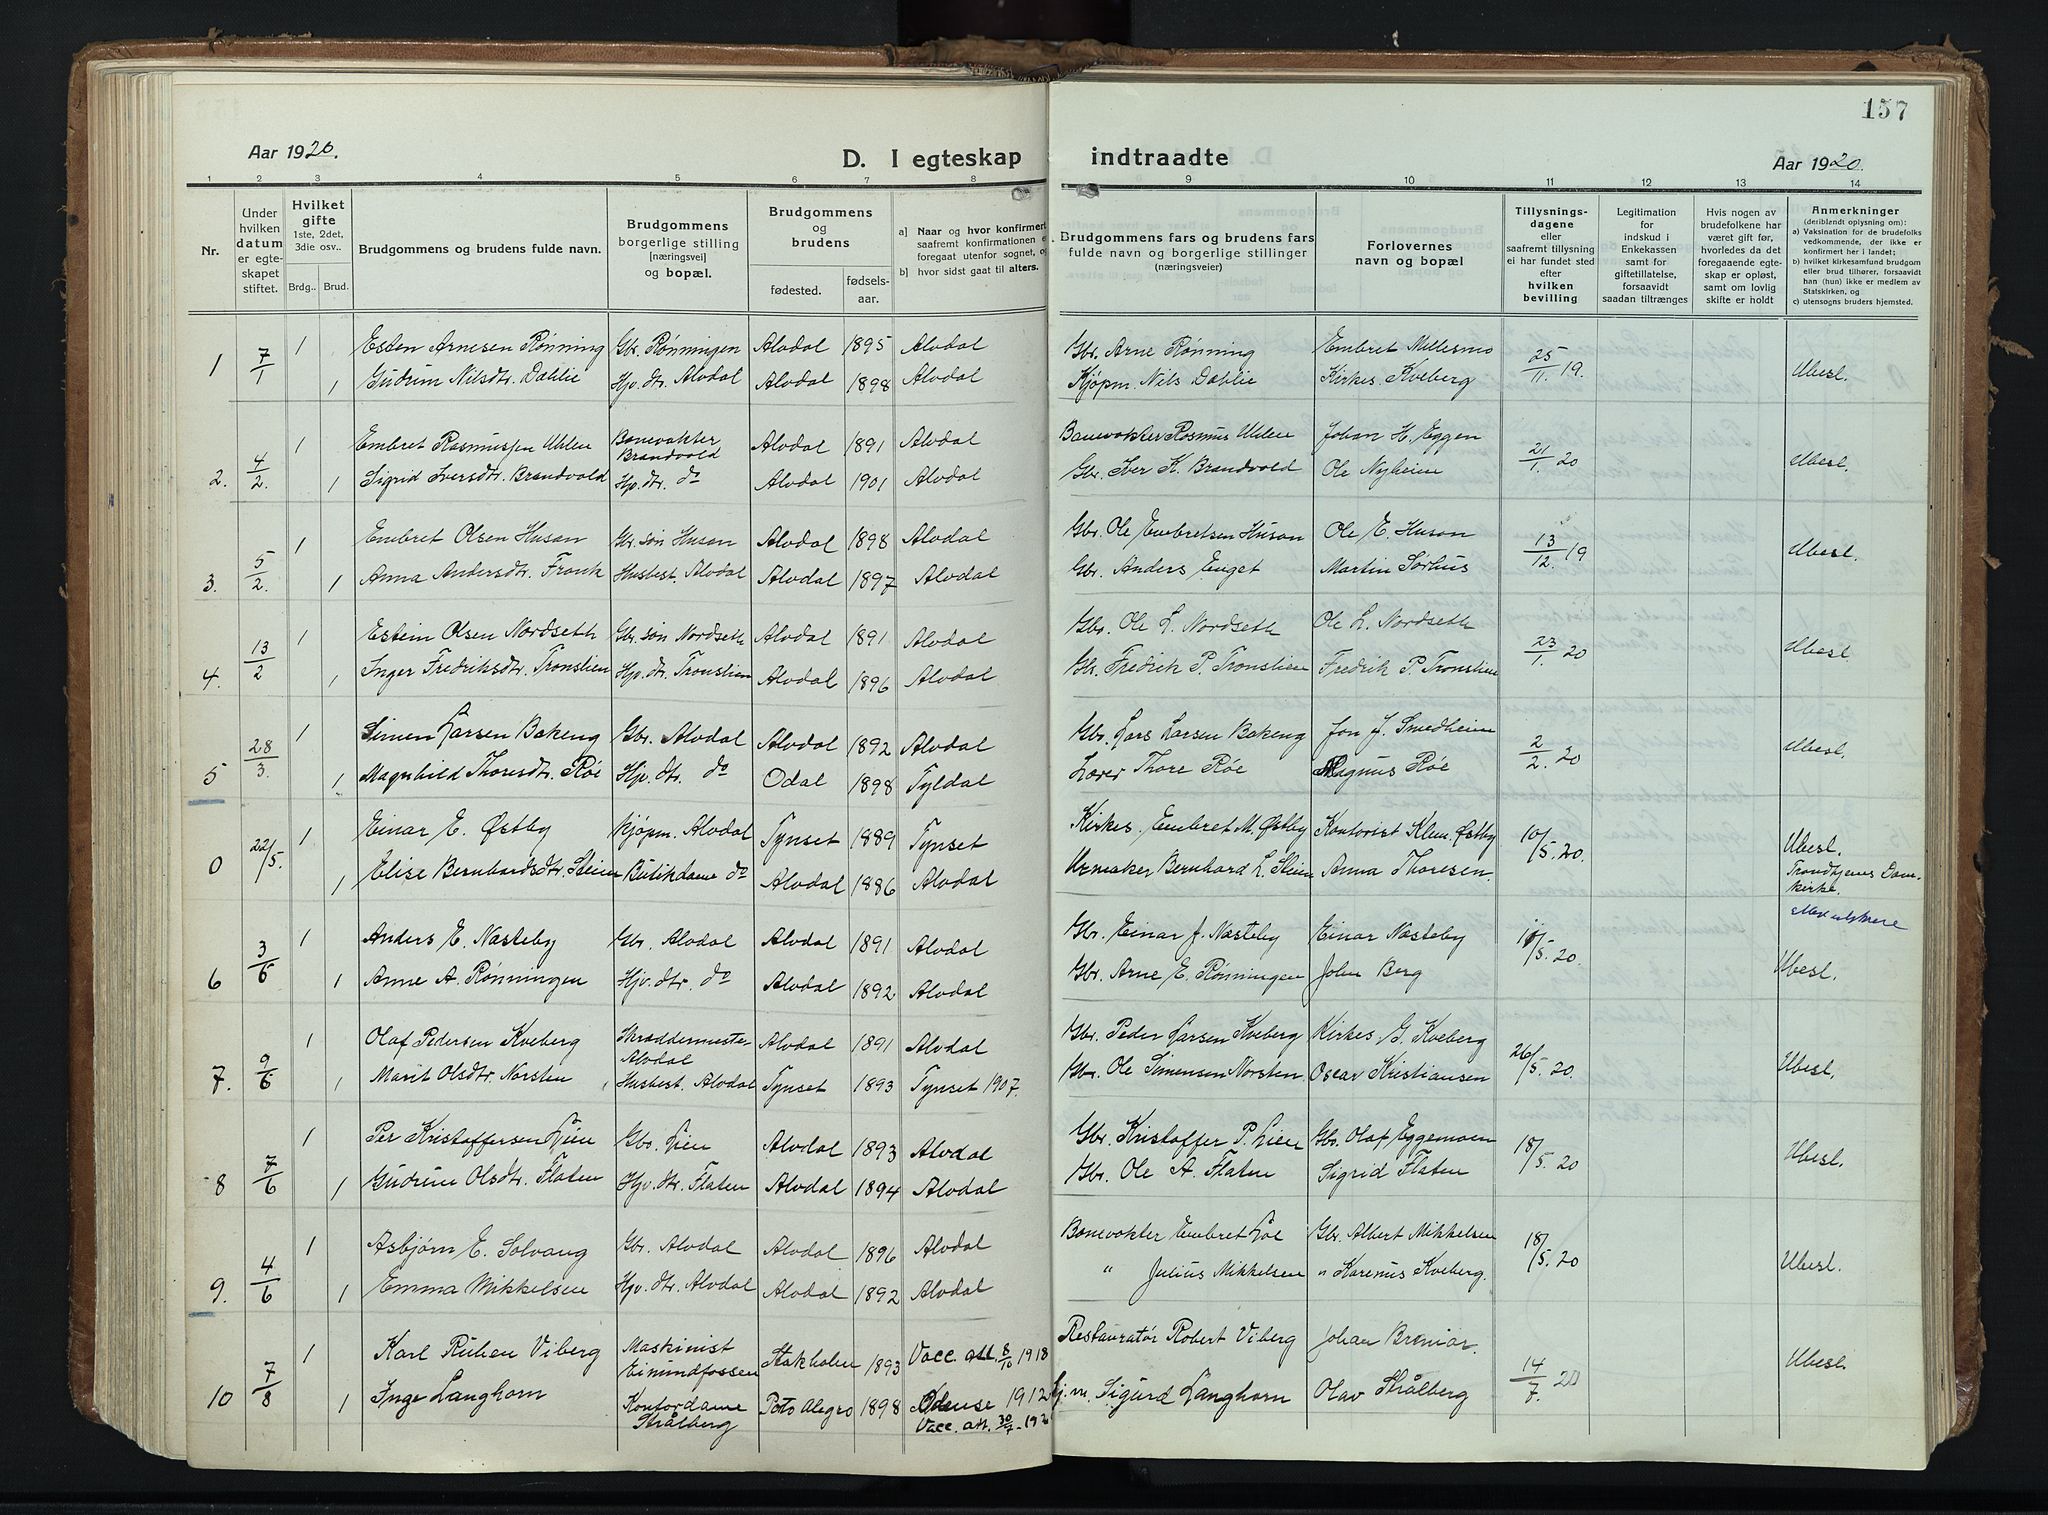 157
Aar 1920.
D. I egteskap indtraadte
Aar 1920.
1 2 3 4 5 6 7 8 9 10 11 12 13 14
Nr.
Under hvilken datum er egteskapet stiftet.
Hvilket gifte 1ste, 2det, 3die osv..
Brdg.. Brud.
Brudgommens og brudens fulde navn.
Brudgommens borgerlige stilling [næringsvei] og bopæl.
Brudgommens og brudens
fødested. fødselsaar.
a] Naar og hvor konfirmert saafremt konfirmationen e foregaat utenfor sognet, og
b] hvor sidst gaat til alters.
Brudgommens fars og brudens fars fulde navn og borgerlige stillinger (næringsveier)
Forlovernes navn og bopæl
Tillysningsdagene eller saafremt tillysning ei har fundet sted efter hvilken bevilling
Legitimation for indskud i Enkekassen samt for giftetillatelse, forsaavidt saadan tiltrænges
Hvis nogen av brudefolkene har været gift før, hvorledes da det foregaaende egteskap er opløst, samt om lovlig skifte er holdt
Anmerkninger (deriblandt oplysning om): a) Vaksination for de brudefolks vedkommende, der ikke er konfirmert her i landet; b) hvilket kirkesamfund brudgom eller brud tilhører, forsaavidt han (hun) ikke er medlem av Statskirken, og c) utensogns bruders hjemsted.
1 7/1 1 Esten Arnesen Rønning Gbr. Rønningen Alvdal 1895 Alvdal Gbr. Arne Rønning Embret Mellesmo 25/11.19. Ubesl.
1 Gudrun Nilsdtr. Dahlie Hjv. dtr. Alvdal Alvdal 1898 Alvdal Kjøpm. Nils Dahlie Kirkes. Kveberg
2. 4/2. 1 Embret Rasmussen Uhlen Banevokter Brandvold Alvdal 1891 Alvdal Banevokter Rasmus Uhlen Johan H. Eggen 21/1. 20 Ubesl.
1 Sigrid Iversdtr. Brandvold Hjv. dtr. do Alvdal 1901 Alvdal Gbr. Iver K. Brandvold Ole Nyheim
3. 5/2. 1 Embret Olsen Husan Gbr. søn Husan Alvdal 1898 Alvdal Gbr. Ole Embretsen Husan Ole E. Husan 13/12. 19 Ubesl.
1 Anna Andersdtr. Fronk Husbest. Alvdal Alvdal 1897 Alvdal Gbr. Anders Enget Martin Sørhus
4. 13/2 1 Estein Olsen Nordseth Gbr. søn Nordseth Alvdal 1891 Alvdal Gbr. Ole L. Nordseth Ole L. Nordseth 23/1. 20 Ubesl
1 Inger Fredriksdtr. Tronslien Hjv. dtr. Tronslien Alvdal 1896 Alvdal Gbr. Fredrik P. Tronslien Fredrik P. Tronslien
5 28/3. 1 Simen Larsen Bakeng Gbr. Alvdal Alvdal 1892 Alvdal Gbr. Lars Larsen Bakeng Jon J. Smedheim 2/2. 20 Ubesl.
1 Magnhild Thoresdtr. Røe Hjv. dtr. do Odal 1898 Tyldal Lærer Thore Røe Magnus Røe
0 22/5. 1 Einar E. Østby Kjøpm. Alvdal Tynset 1889 Tynset Kirkes. Embret M. Østby Kontorist Klem. Østby 10/5. 20. Ubesl.
1 Elise Bernhardsdtr. Steien Butikdame do Alvdal 1886 Alvdal Urmaker Bernhard L. Steien Anna Thoresen. Trondhjems Domkirke.
6 3/6 1 Anders E. Næsteby Gbr. Alvdal Alvdal 1891 Alvdal Gbr. Einar J. Næsteby Einar Næsteby 5. 20. Ubesl.
1 Anne A. Rønningen Hjv. dtr. do Alvdal 1892 Alvdal Gbr. Arne E. Rønningen John Berg
7. 9/6 1 Olaf Pedersen Kveberg Skræddermester Alvdal Alvdal 1891 Alvdal Gbr. Peder Larsen Kveberg Kirkes. G. Kveberg 26/5. 20. Ubesl.
1 Marit Olsdtr. Norsten Husbest. Alvdal Tynset 1893 Tynset 1907. Gbr. Ole Simensen Norsten Oscar Kristiansen
8 7/6 1 Per Kristoffersen Lien Gbr. Lien Alvdal 1893 Alvdal Gbr. Kristoffer P. Lien Gbr. Olaf Eggemoen 18/5. 20 Ubesl.
1 Gudrun Olsdtr. Flaten Hjv. dtr. Flaten Alvdal 1894 Alvdal Gbr. Ole A. Flaten Sigrid Flaten
9. 4/6 1 Asbjørn E. Solvang Gbr. Alvdal Alvdal 1896 Alvdal Banevokter Embret Løe Gbr. Albert Mikkelsen 18/5. 20 Ubesl.
1 Emma Mikkelsen Hjv. dtr. Alvdal Alvdal 1892 Alvdal " Julius Mikkelsen " Karenus Kveberg.
10 7/8 1 Karl Ruben Viberg Maskinist Eimundfossen Stokholm 1893 Vacc. att. 8/10 1918 Restauratør Robert Viberg Johan 14/7 20 Ubesl.
1 Inge Langhorn Kontordame Strålberg Porto Alegro 1898 Odense 1912 Vacc. att. 30/7-192 Kj.m. Sigurd Langhorn Olav Strålberg